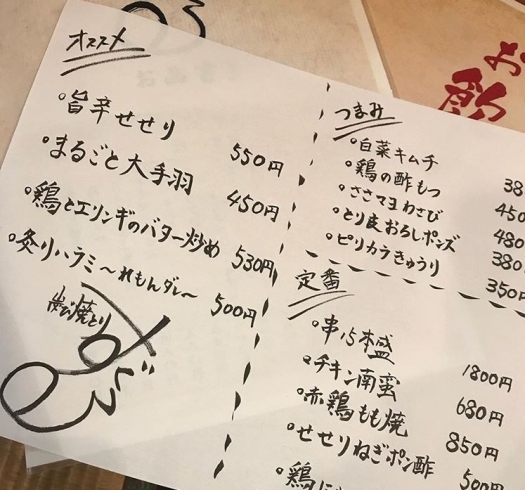 オススメ
旨辛せせり 550円
まるごと大手羽 450円
鶏とエリンギのバター炒め 530円
炙りハラミ〜れもんダレ〜 500円
炭火焼とり
つまみ
白菜キムチ 38
鶏の酢もつ 450
ささマヨわさび 480
とり皮おろしポンズ 380
ピリカラきゅうり 350円
定番
串15本盛 1800円
チキン南蛮 680円
赤鶏もも焼 850円
せせりねぎポン酢 500円
鶏に